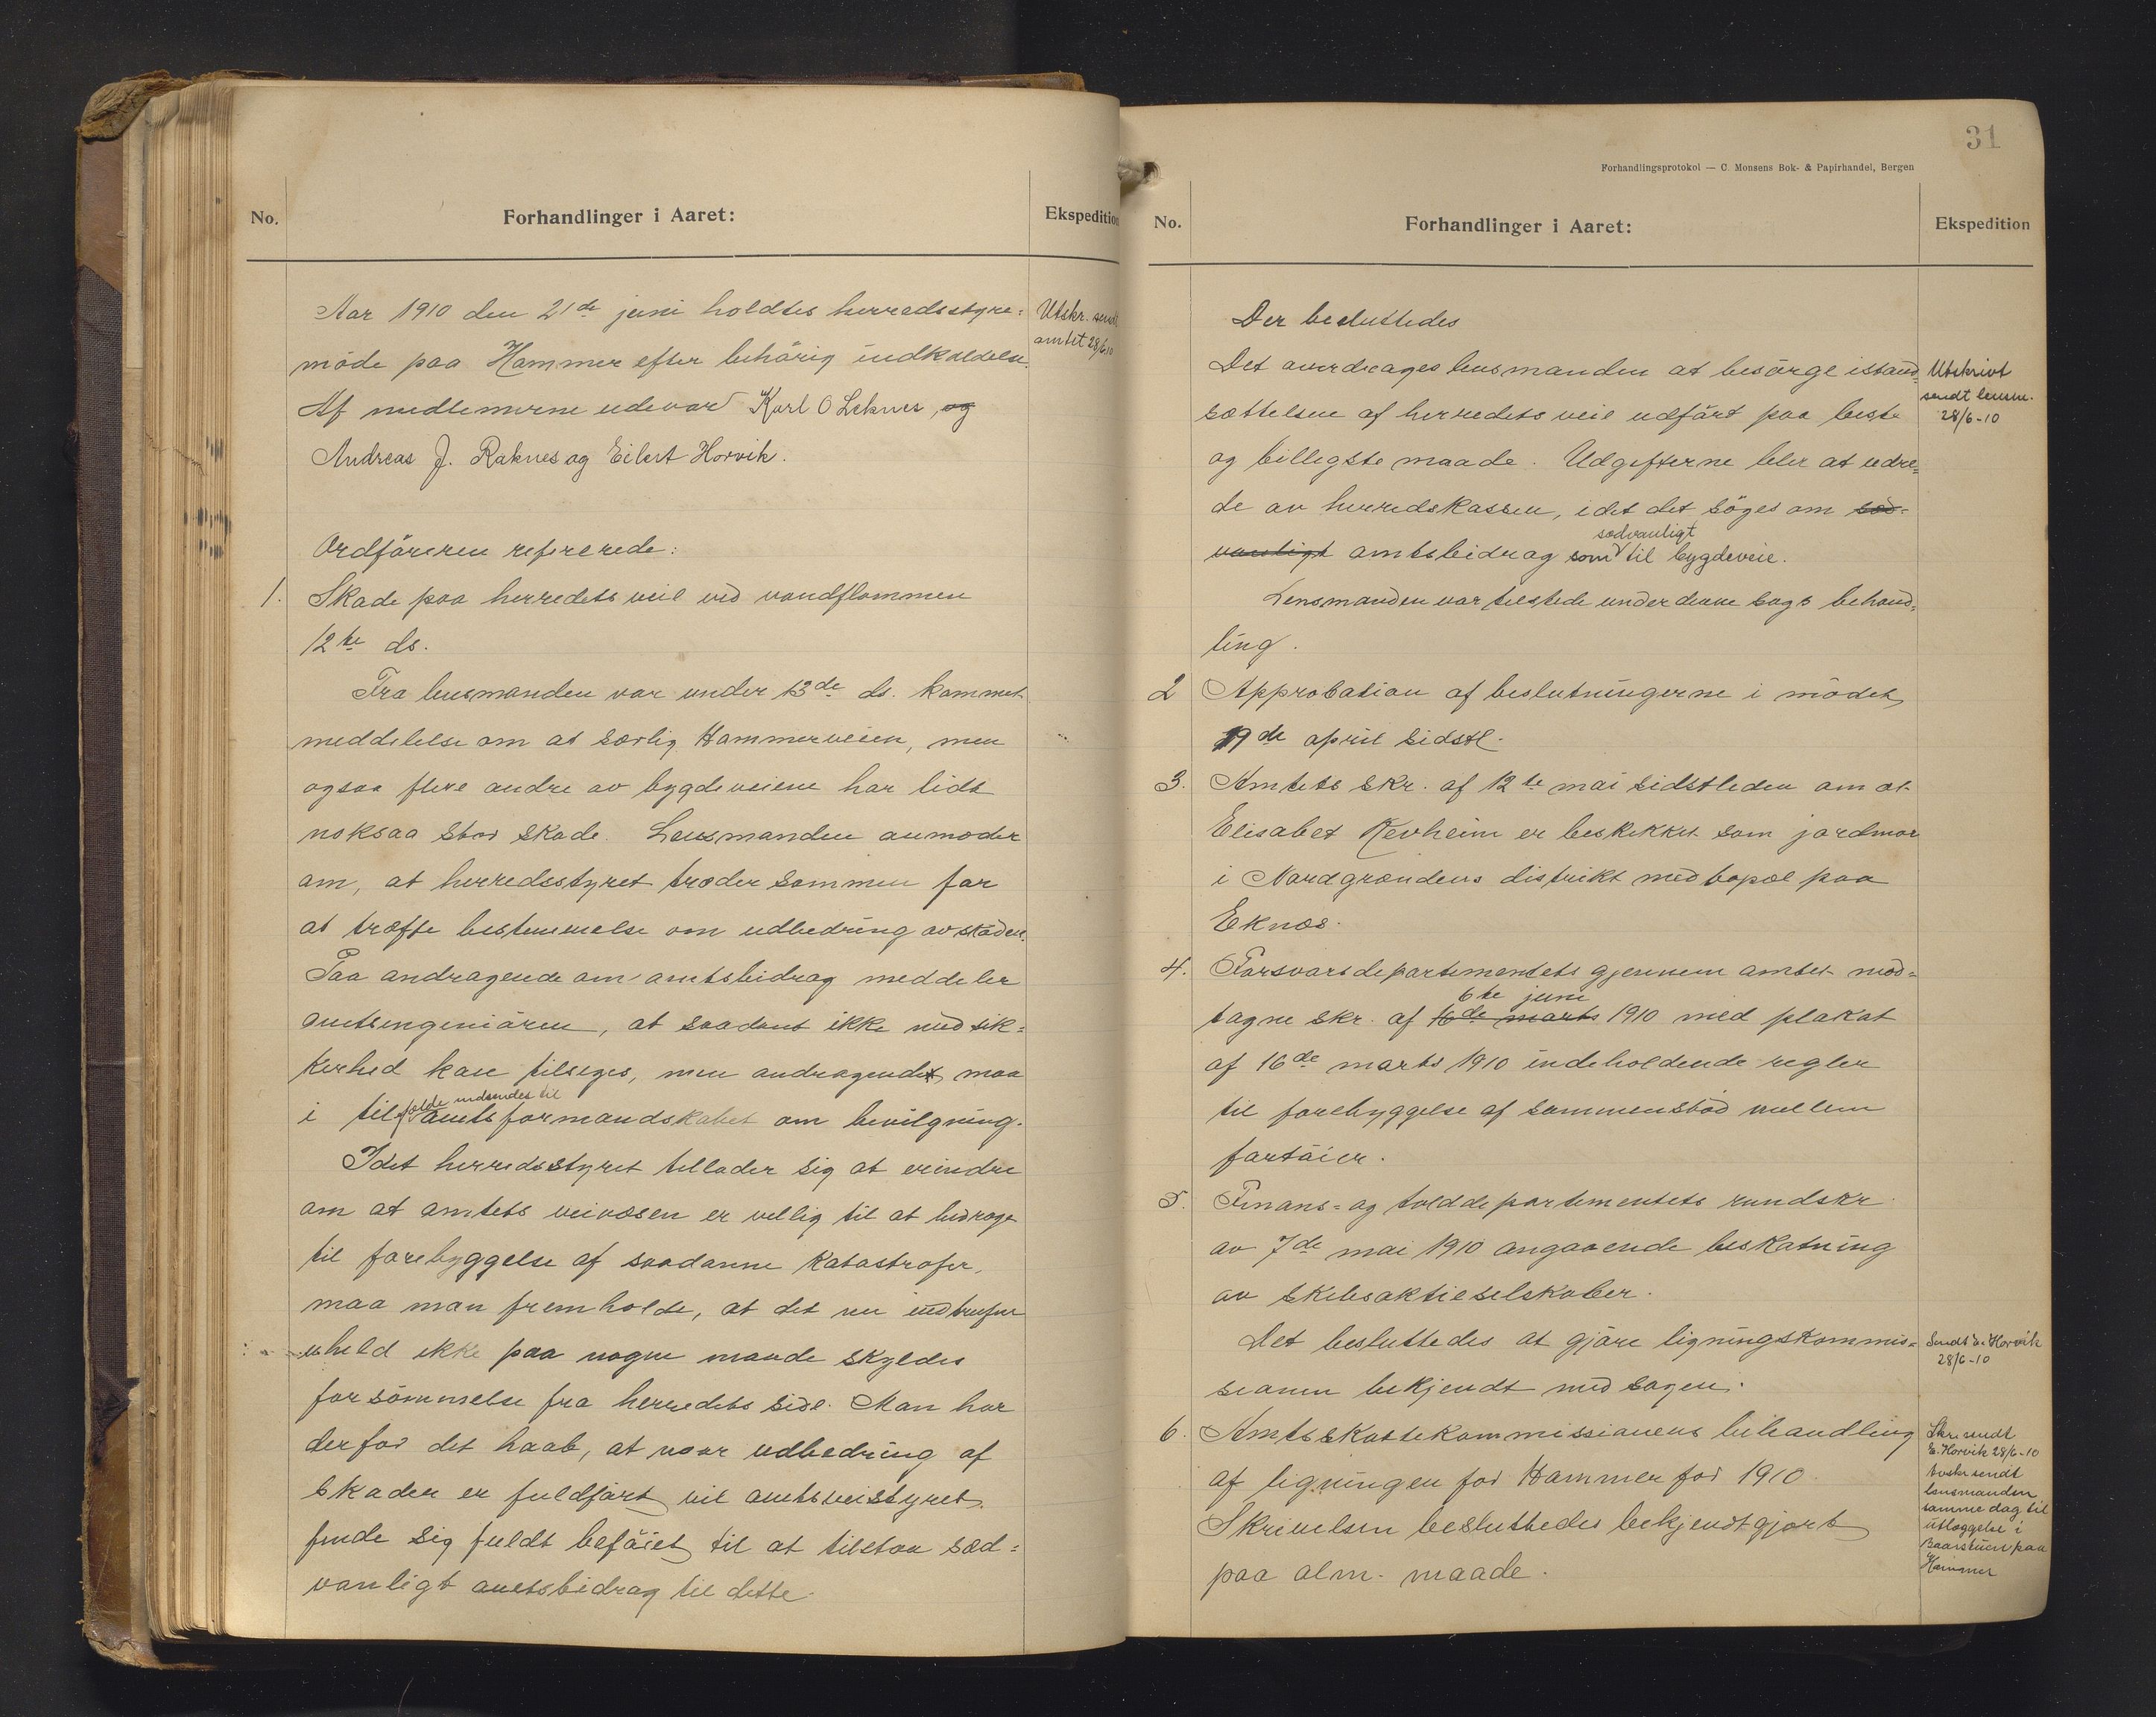 No.
Forhandlinger i Aaret:
Ekspedition
Aar 1910 den 21de juni holdtes herredsstyre=
møde paa Hammer efter behørig indkaldelse.
Af medlemerne udevar Karl O Leknes, og
Andreas J. Raknes og Eilert Horvik.
Utskr. sendt
amtet 28/6 10
Ordføreren refererede:
1. Skade paa herredets veie ved vandflommen
12te ds.
Fra lensmanden var under 13de ds. kommet
meddelelse om at særlig Hammerveien, men
ogsaa flere andre av bygdeveiene har lidt
noksaa stor skade. Lensmanden anmoder
om, at herredsstyret træder sammen for
at træffe bestemmelse om udbedring av skaden.
Paa andragende om amtsbidrag meddeler
amtsingeniøren, at saadant ikke med sik=
kerhed kan tilsiges, men andragendet maa
i tilfælde indsendes til amtsformandskabet om bevilgning.
Idet herredsstyret tillader sig at erindre
om at amtets veivæsen er villig til at bidrage
til forebyggelse af saadanne katastrofer,
maa man fremholde, at det nu indtrufne
uheld ikke paa nogen maade skyldes
forsømmelse fra herredets side. Man har
derfor det haab, at naar udbedring af
skaden er fuldført vil amtsveistyret
finde sig fuldt beføiet til at tilstaa sæd=
vanligt amtsbidrag til dette.
31
Forhandlingsprotokol — C. Monsens Bok- & Papirhandel, Bergen
No.
Forhandlinger i Aaret:
Ekspedition
Der besluttedes
Det overdrages lensmanden at besørge istand=
sættelsen af herredets veie udført paa beste
og billigste maade. Udgifterne blir at udre=
de av herredskassen, idet det søges om sæd=
vanligt amtsbidrag som sædvanligt til bygdeveie.
Utskrivt
sendt lensm.
28/6-10
Lensmanden var tilstede under denne sags behand=
ling.
2 Approbation af beslutningerne i mødet
19de april sidstl.
3. Amtets skr. af 12te mai sidstleden om at
Elisabet Revheim er beskikket som jordmor
i Nordgrændens distrikt med bopæl paa
Eknæs.
4. Forsvarsdepartementets gjennem amtet mod=
tagne skr. af 16de marts 6te juni 1910 med plakat
af 16de marts 1910 indeholdende regler
til forebyggelse af sammenstød mellem
fartøier.
5. Finans- og tolddepartementets rundskr
av 7de mai 1910 angaaende beskatning
av skibsaktieselskaber.
Det besluttedes at gjøre ligningskommis=
sionen bekjendt med sagen.
Sendt E. Horvik
28/6-10
6. Amtsskattekommissionens behandling
af ligningen for Hammer for 1910.
Skrivelsen besluttedes bekjendtgjort
paa alm. maade.
Skr. sendt
E. Horvik 28/6-10
sendt
lensmanden
samme dag til
utlæggelse i
paa
Hammer